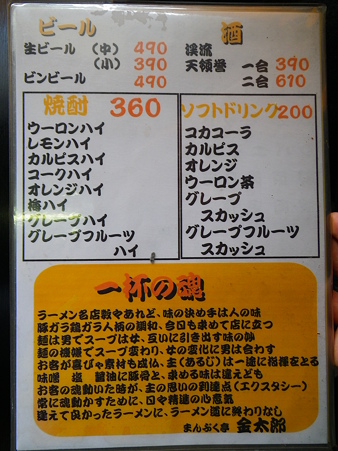 ビール
生ビール (中) 490
(小) 390
ビンビール 490
酒
渓流
天領誉 一合 390
二合 610
焼酎 360
ウーロンハイ
レモンハイ
カルピスハイ
コークハイ
オレンジハイ
梅ハイ
グレープハイ
グレープフルーツ
ハイ
ソフトドリンク200
コカコーラ
カルピス
オレンジ
ウーロン茶
グレープ
スカッシュ
グレープフルーツ
スカッシュ
一杯の魂
ラーメン名店数々あれど、味の決め手は人の味
豚ガラ鶏ガラ人柄の調和、今日も求めて店に立つ
麺は男でスープは女、互いに引き出す味の妙
麺の機嫌でスープ変わり、女の変化に男は合わす
お客が喜びゃ素材も成仏、主(あるじ)は一途に指揮をとる
味噌 塩 醤油に豚骨と、求める味は違えども
お客の魂動いた時が、主の思いの到達点(エクスタシー)
常に魂動かす為に、日々精進の心意気
逢えて良かったラーメンに、ラーメン道に終わりなし
まんぷく亭 金太郎